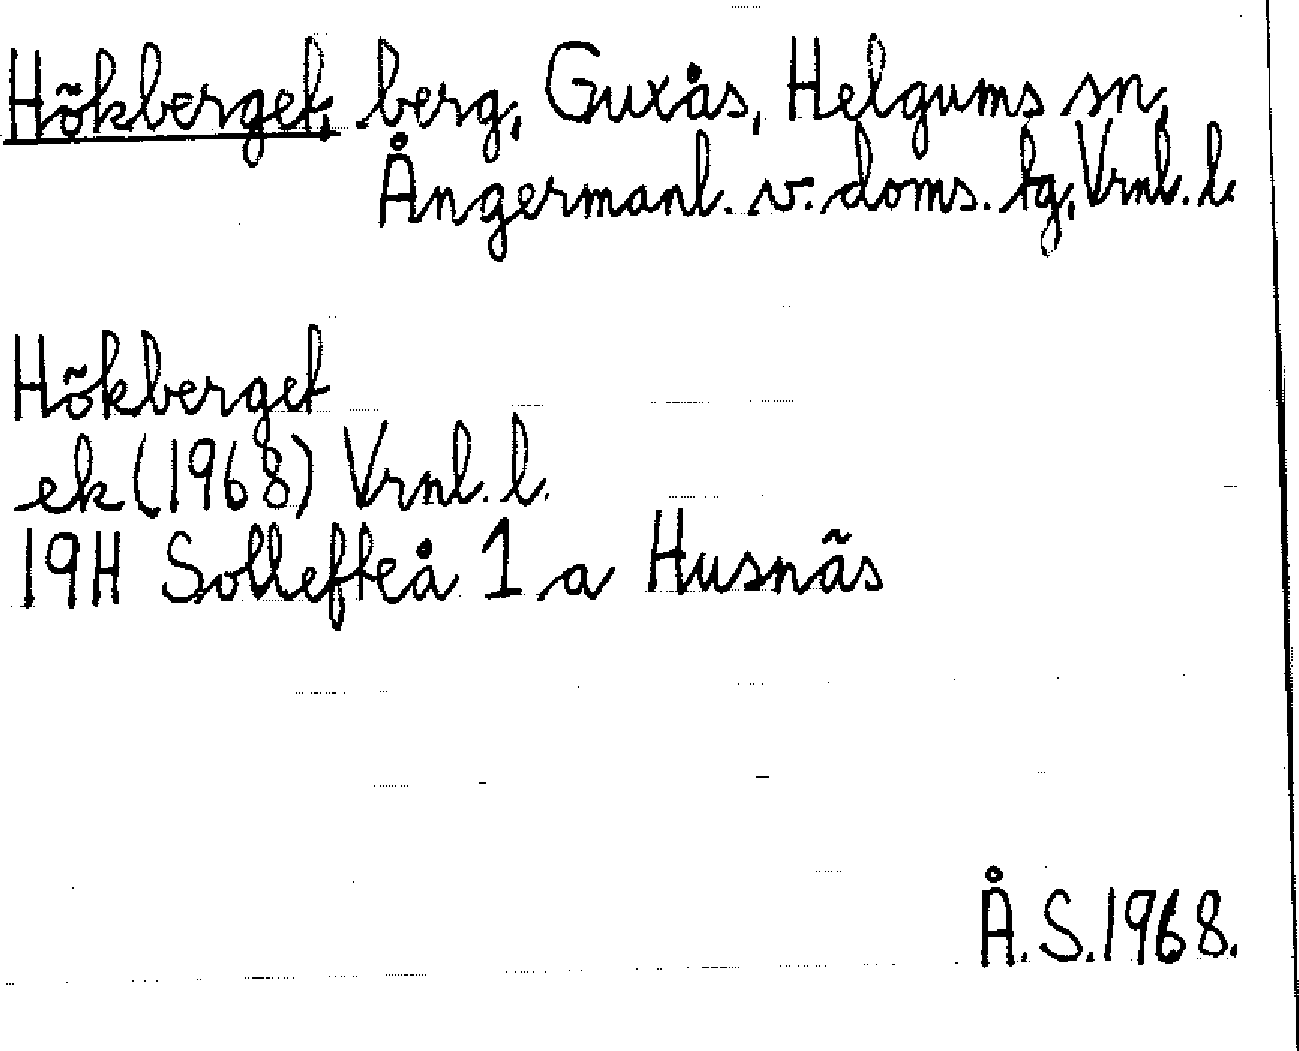 Hökberget, berg, Guxås, Helgums sn,
Ångermanl. v. doms. tg, Vrnl. l.
Hökberget
ek (1968) Vrnl. l.
19H Sollefteå 1 a Husnäs
Å. S. 1968.